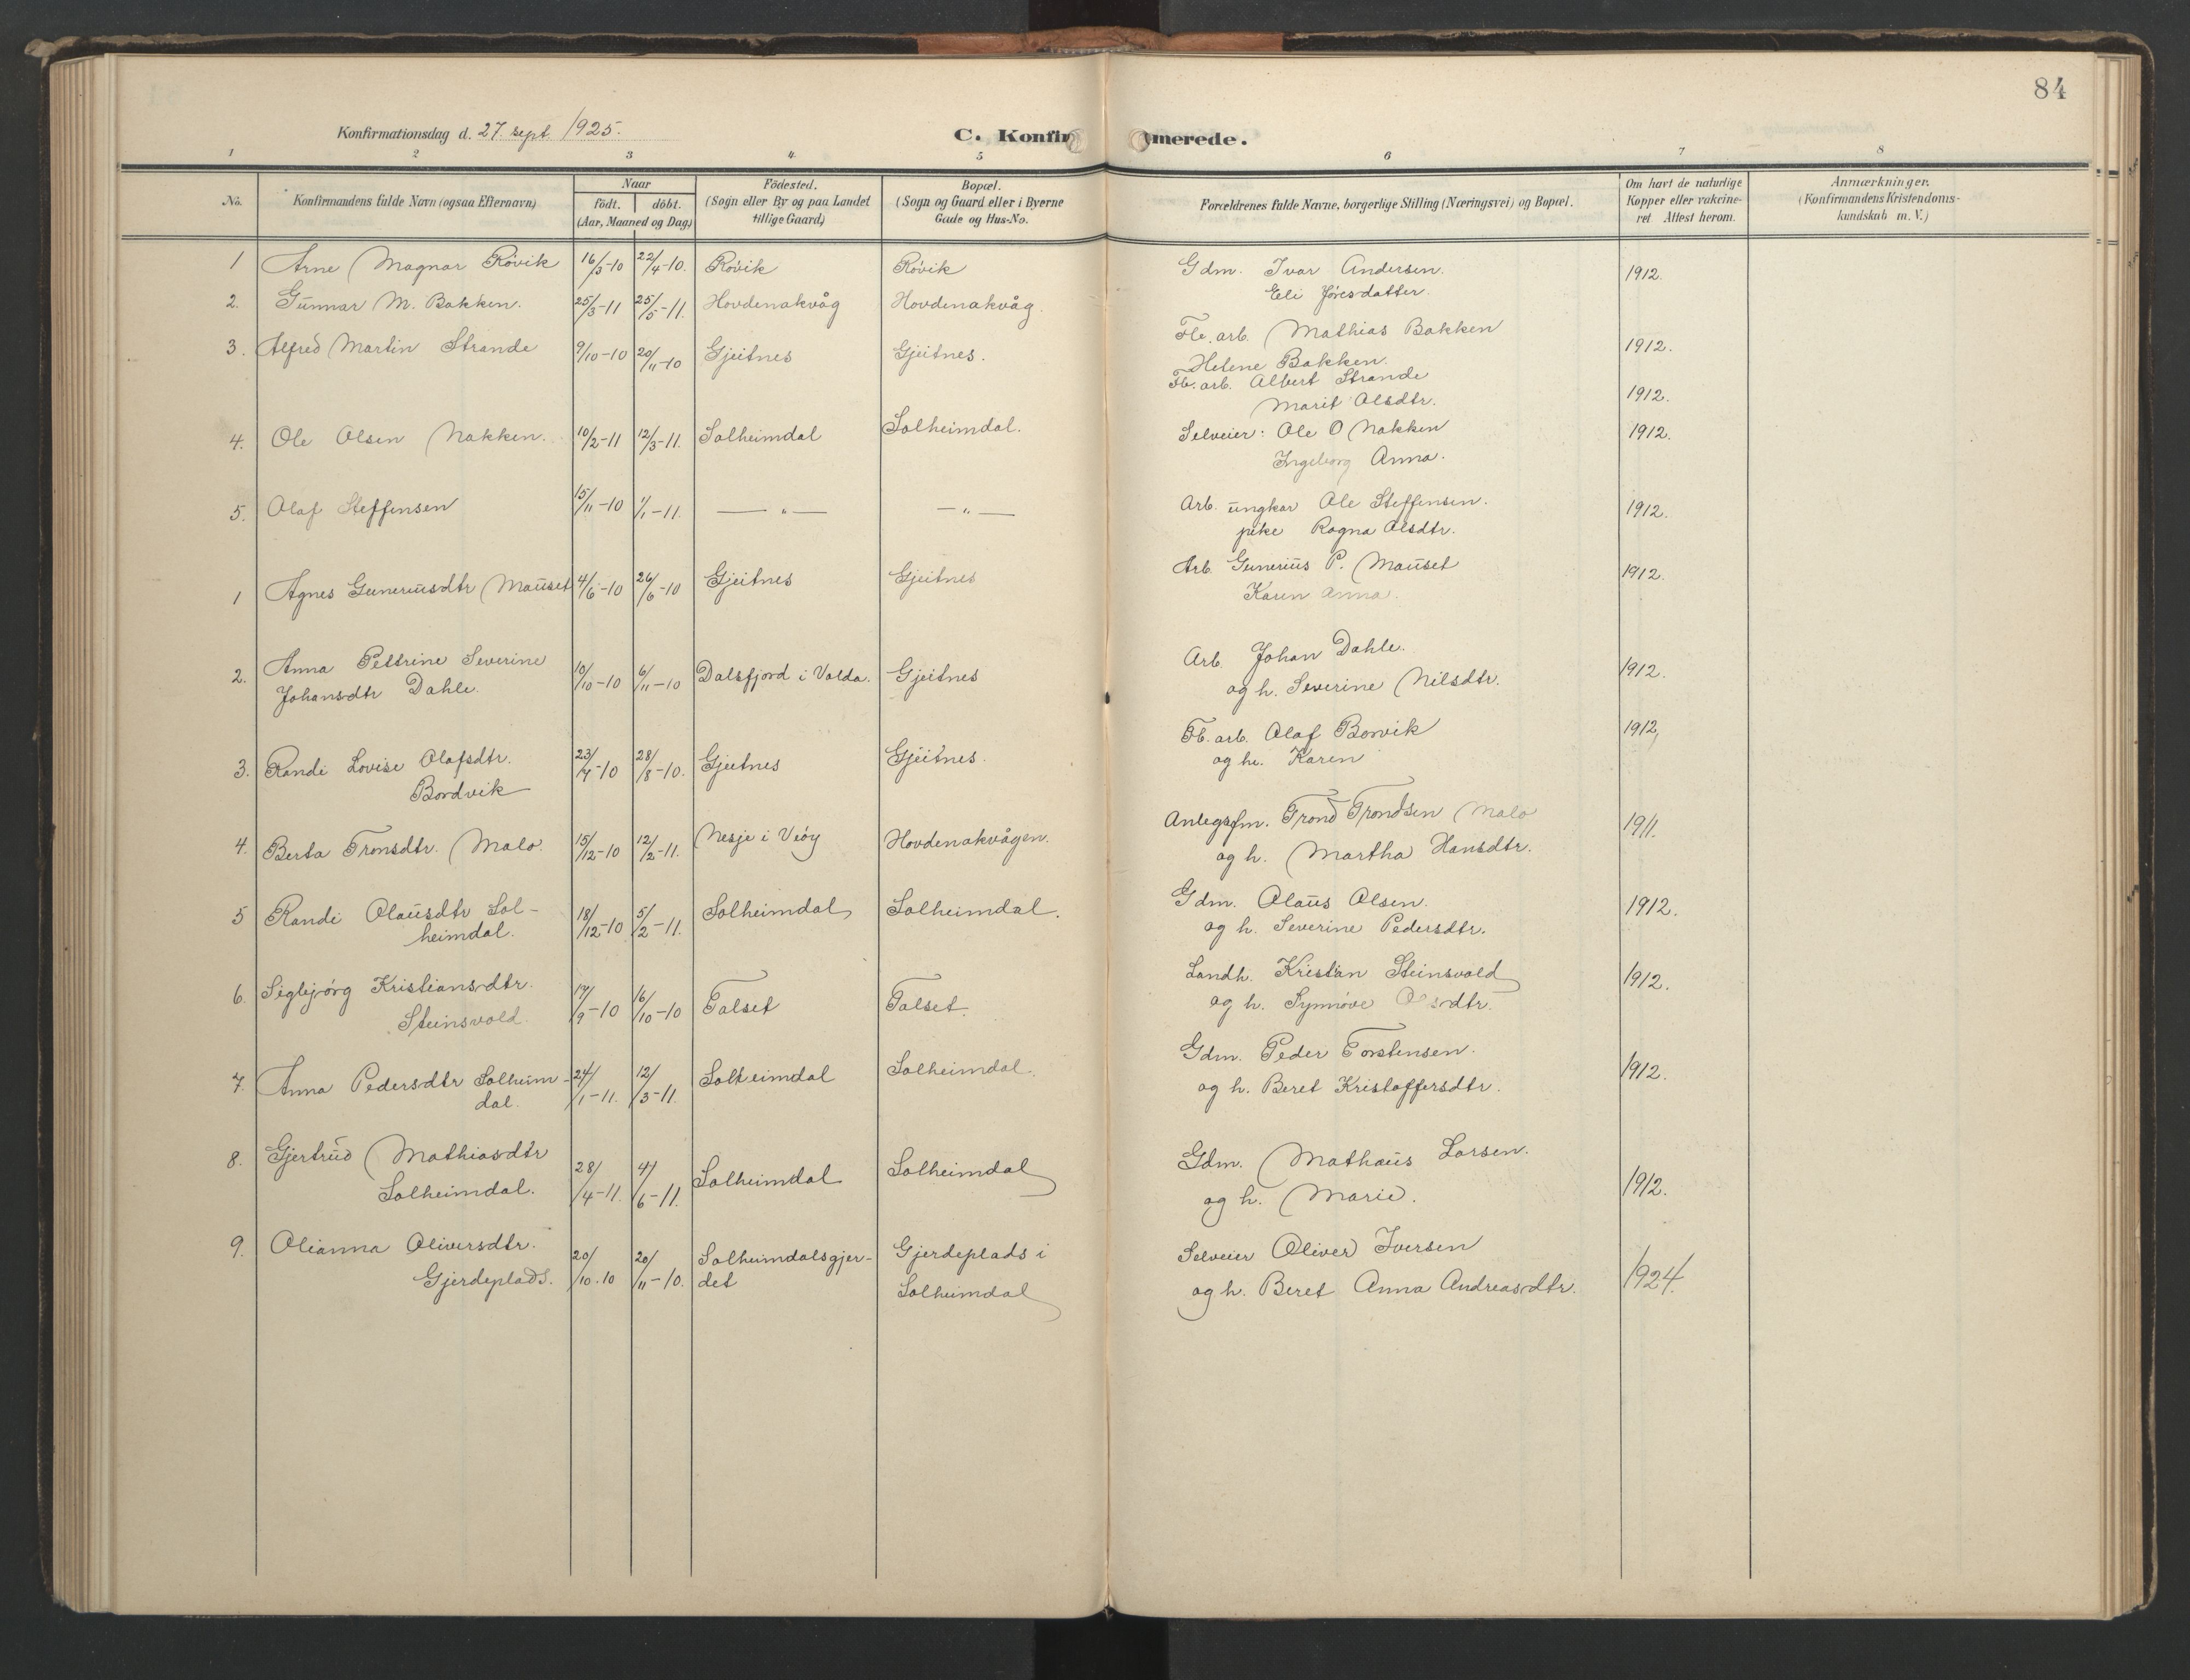 84
Konfirmationsdag d. 27. sept. 1925.
C. Konfirmerede.
1 2 3 4. 5 6 7 8
No.
Konfirmandens fulde Navn (ogsaa Efternavn)
Naar
født. døbt.
(Aar, Maaned og Dag)
Födested.
(Sogn eller By og paa Landet
tillige Gaard)
Bopæl.
(Sogn og Gaard eller i Byerne
Gade og Hus-No.
Forældrenes fulde Navne, borgerlige Stilling (Næringsvei) og Bopæl.
Om havt de naturlige
Kopper eller vakcine-
ret Attest herom.
Anmærkninger.
(Konfirmandens Kristendoms-
kundskab m. V.)
1 Arne Magnar Rövik 16/3-10 22/4-10. Rövik Rövik Gdm. Ivar Andersen. 1912.
Eli Jöresdatter.
2. Gunnar M. Bakken. 25/3-11 25/5-11. Hovdenakvåg Hovdenakvåg. Fb. arb. Mathias Bakken 1912.
Helene Bakken.
3. Alfred Martin Strande 9/10-10 20/11-10 Gjeitnes Gjeitnes. Fb. arb. Albert Strande 1912.
Marit Olsdtr.
4. Ole Olsen Nakken. 10/2-11 12/3-11. Solheimdal Solheimdal. Selveier: Ole O Nakken 1912.
Ingeborg Anna.
5. Olaf Steffensen 15/11-10 1/1-11. — „ — — „ — Arb. ungkar Ole Steffensen. 1912.
pike Ragna Olsdtr.
1 Agnes Guneriusdtr Mauset 4/6-10 26/6-10 Gjeitnes Gjeitnes Arb. Gunerius P. Mauset 1912.
Karen Anna.
2. Anna Pettrine Severine
Johansdtr Dahle. 10/10-10 6/11-10 Dalsfjord i Volda. Gjeitnes Arb. Johan Dahle. 1912.
og h. Severine Nilsdtr.
3. Randi Lovise Olafsdtr.
Bordvik 23/7-10 28/8-10. Gjeitnes Gjeitnes. Fb. arb. Olaf Borvik 1912,
og h. Karen
4. Berta Tronsdtr. Malo. 15/12-10 12/2-11. Nesje i Veöy Hovdenakvågen. Anlegsfm. Trond Trondsen Malo 1911.
og h. Martha Hansdtr.
5 Randi Olausdtr Sol-
heimdal. 18/12-10 5/2-11. Solheimdal Solheimdal. Gdm. Olaus Olsen. 1912.
og h. Severine Pedersdtr.
6. Sigbjörg Kristiansdtr.
Steinsvold. 17/9-10 16/10-10 Talset Talset. Landh. Kristian Steinsvold 1912.
og h. Synnöve Olsdtr.
7. Anna Pedersdtr Solheim-
dal. 24/1-11. 12/3-11. Solheimdal Solheimdal. Gdm. Peder Torstensen. 1912.
og h. Beret Kristoffersdtr.
8. Gjertrud Mathiasdtr
Solheimdal. 28/4-11. 4/6-11. Solheimdal Solheimdal Gdm. Mathæus Larsen. 1912.
og h. Marie.
9. Olianna Oliversdtr.
Gjerdeplads. 20/10.10 20/11-10. Solheimdalsgjer-
det Gjerdeplads i
Solheimdal Selveier Oliver Iversen 1924.
og h. Beret Anna Andreasdtr.